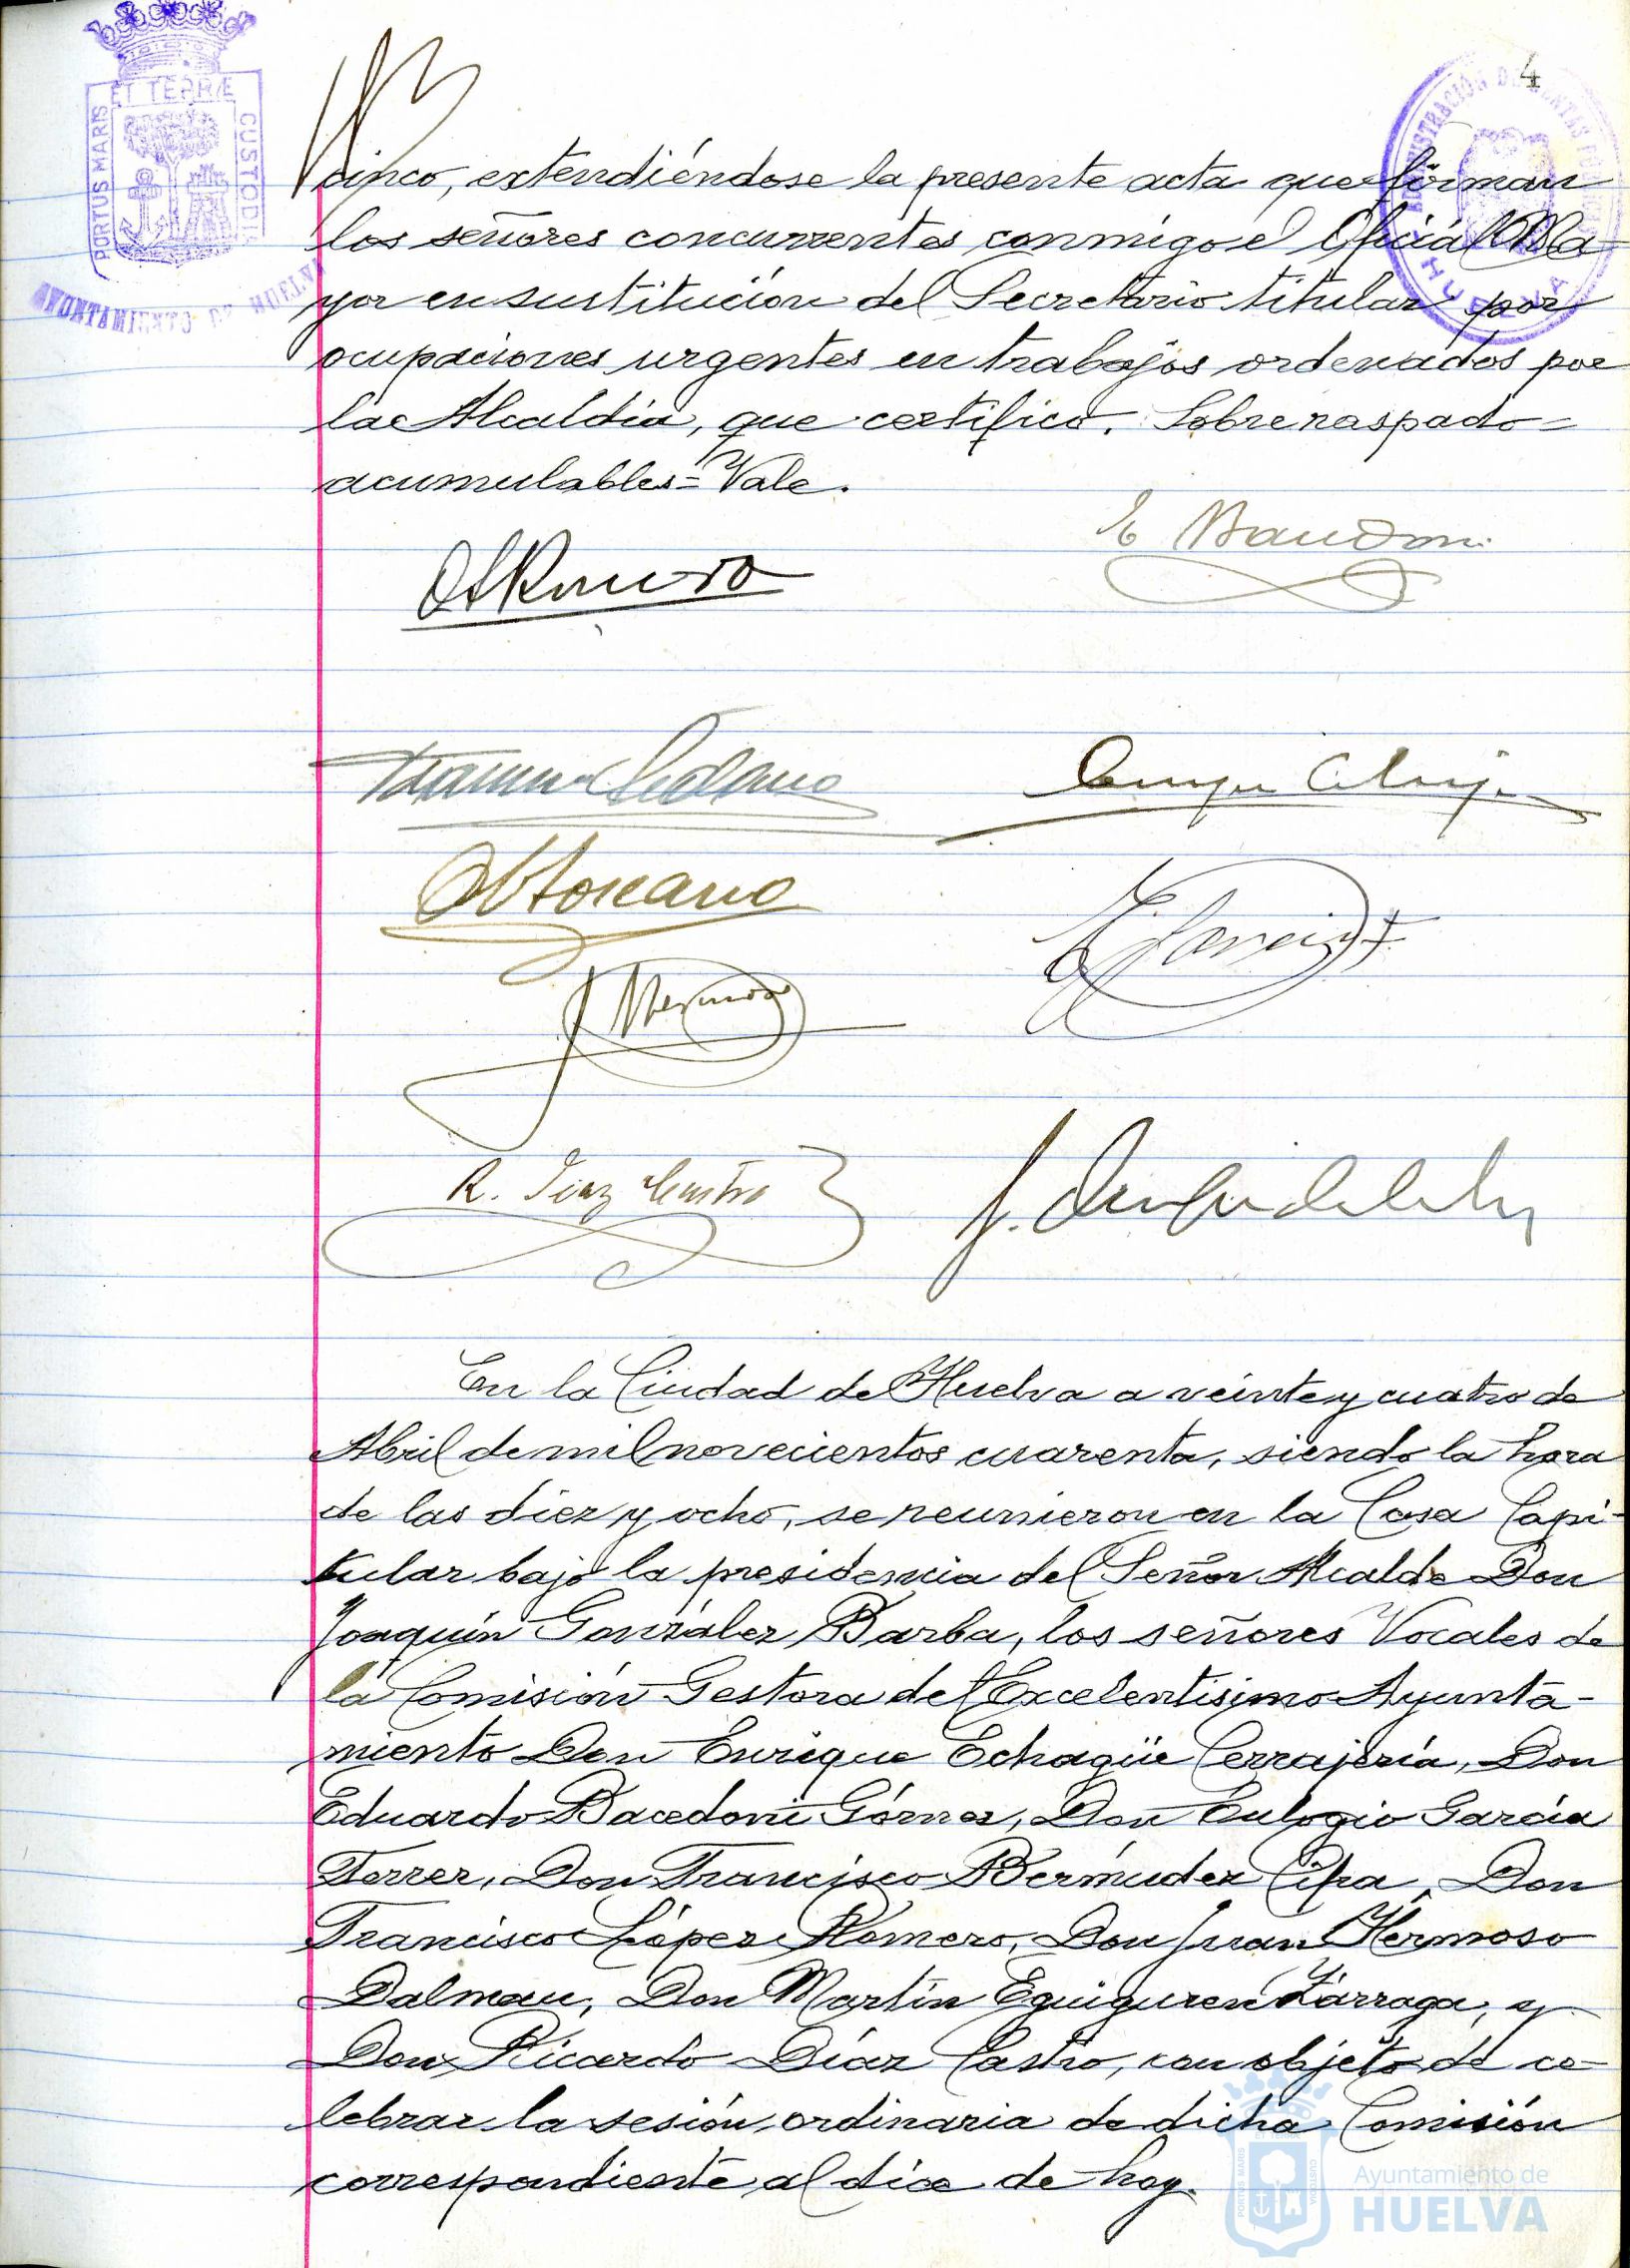 4
ET TERRÆ
PORTUS MARIS
CUSTODIA
AYUNTAMIENTO DE HUELVA
HUELVA
cinco, extendiéndose la presente acta que firman
los señores concurrentes conmigo el Oficial Ma-
yor en sustitución del Secretario titular por
ocupaciones urgentes en trabajos ordenados por
la Alcaldía, que certifico. Sobre raspado =
acumulables = Vale.
R. Díaz Castro
En la Ciudad de Huelva a veinte y cuatro de
Abril de mil novecientos cuarenta, siendo la hora
de las diez y ocho, se reunieron en la Casa Capi-
tular bajo la presidencia del Señor Alcalde Don
Joaquín González Barba, los señores Vocales de
la Comisión Gestora del Excelentísimo Ayunta-
miento Don Enrique Echagüe Cerrajería, Don
Eduardo Bacedoni Gómez, Don Eulogio García
Ferrer, Don Francisco Bermúdez Cifra, Don
Francisco López Romero, Don Juan Hermoso
Dalmau, Don Martín Eguiguren Zárraga, y
Don Ricardo Díaz Castro, con objeto de ce-
lebrar la sesión ordinaria de dicha Comisión
correspondiente al día de hoy.
Ayuntamiento de
HUELVA